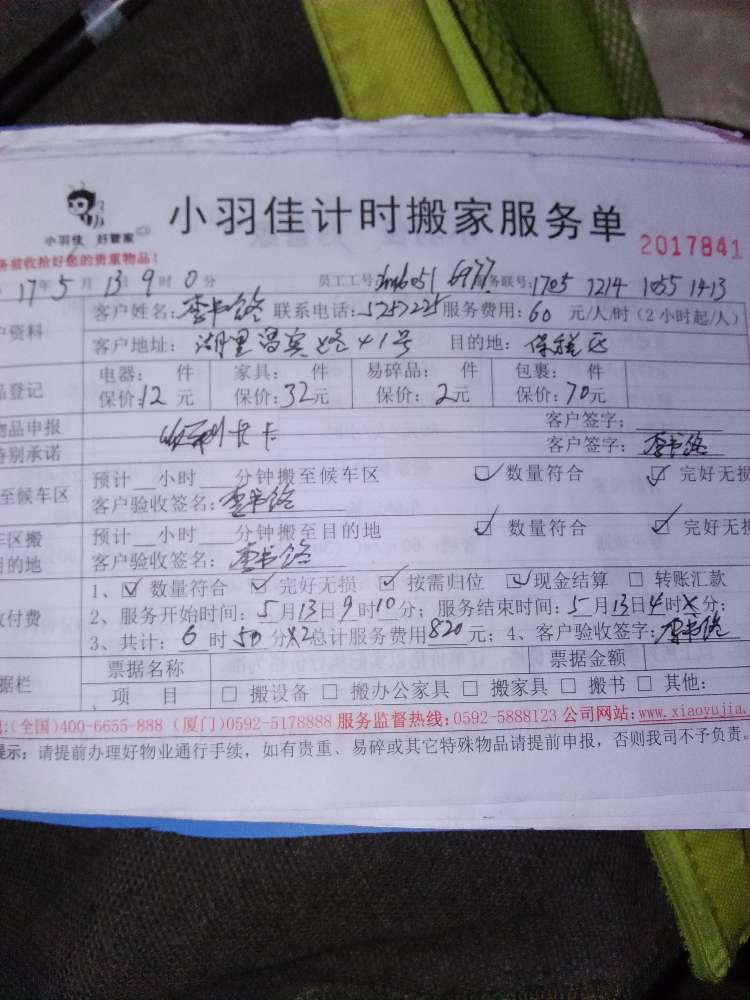 小羽佳 好管家
小羽佳计时搬家服务单
2017841
务前收拾好您的贵重物品!
17年5月13 9时0分 员工工号: 6977 务联号:1705 1214 1055 1413
户资料 客户姓名: 联系电话:5252225 服务费用:60元/人/时(2小时起/人)
客户地址:湖里 路41号 目的地:保税区
品登记 电器: 件 家具: 件 易碎品: 件 包裹: 件
保价:12元 保价:32元 保价:2元 保价:70元
物品申报 客户签字:
特别承诺 客户签字:
至候车区 预计__小时___分钟搬至候车区 ☑数量符合 ☑完好无损
客户验收签名:
车区搬 预计__小时___分钟搬至目的地 ☑数量符合 ☑完好无损
目的地 客户验收签名:
1、☑数量符合 ☑完好无损 ☑按需归位 ☑现金结算 □转账汇款
收付费 2、服务开始时间:5月13日9时10分;服务结束时间:5月13日4时X分;
3、共计:6时50分X2总计服务费用820元;4、客户验收签字:
据栏 票据名称 票据金额
项 目 □搬设备 □搬办公家具 □搬家具 □搬书 □其他:
:(全国)400-6655-888 (厦门)0592-5178888 服务监督热线:0592-5888123 公司网站:www.xiaoyujia.
提示:请提前办理好物业通行手续,如有贵重、易碎或其它特殊物品请提前申报,否则我司不予负责。